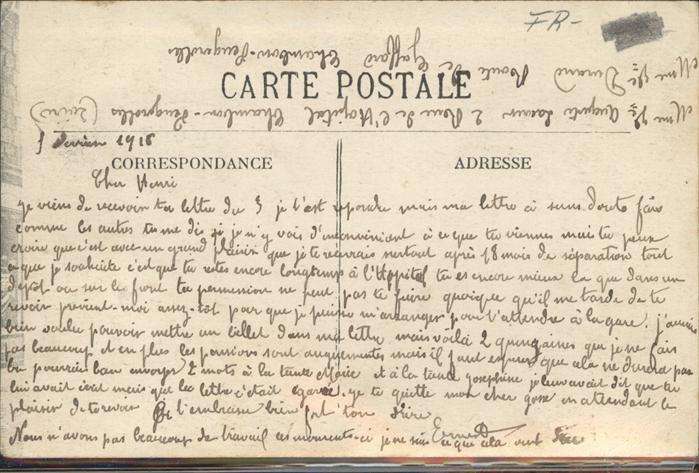 FR-
Mme Vve Durand Route de Gaffard Chambon-Feugerolles
CARTE POSTALE
Mme Vve Auguste 2 Rue de l'Hopital Chambon-Feugerolles (Loire)
1 1916
CORRESPONDANCE ADRESSE
Cher Henri
Je viens de recevoir ta lettre du 3 je t'est repondre mais ma lettre à sans doute fais
comme les autres tu me dis si je n'y vois d'inconvenient à ce que tu viennes mais tu peux
croire que c'est avec un grand plaisir que je te reverais surtout après 18 mois de séparation tout
ce que je souhaite c'est que tu restes encore longtemps à l'Hopital tu es encore mieux la que dans un
depot ou sur le front ta permission ne peut pas te faire quoique qu'il me tarde de te
revoir previent-moi assez-tot pour que je puisse m'arranger pour t'attendre à la gare. j'aurais
bien voulu pouvoir mettre un billet dans ma lettre mais voilà 2 quinzaines que je ne fais
pas beaucoup et en plus les pensions sont augmentés mais il faut esperer que cela ne durera pas
tu pourrais bien envoyer 2 mots à la tante Marie et à la tante Josephine je leur avait dit que tu
lui avait écrit mais que la lettre c'était egaré. je te quitte mon cher gosse en attendant le
plaisir de te revoir je t'embrasse bien fort ton frère
Nous n'avons pas beaucoup de travail ces moments-ci je ne sais ce que cela veut dire